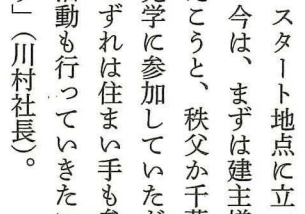 スタート地点に立
今は、まずは建主
こうと、秩父か千
見学に参加していただ
ずれは住まい手も
活動も行っていきたい
」（川村社長）。